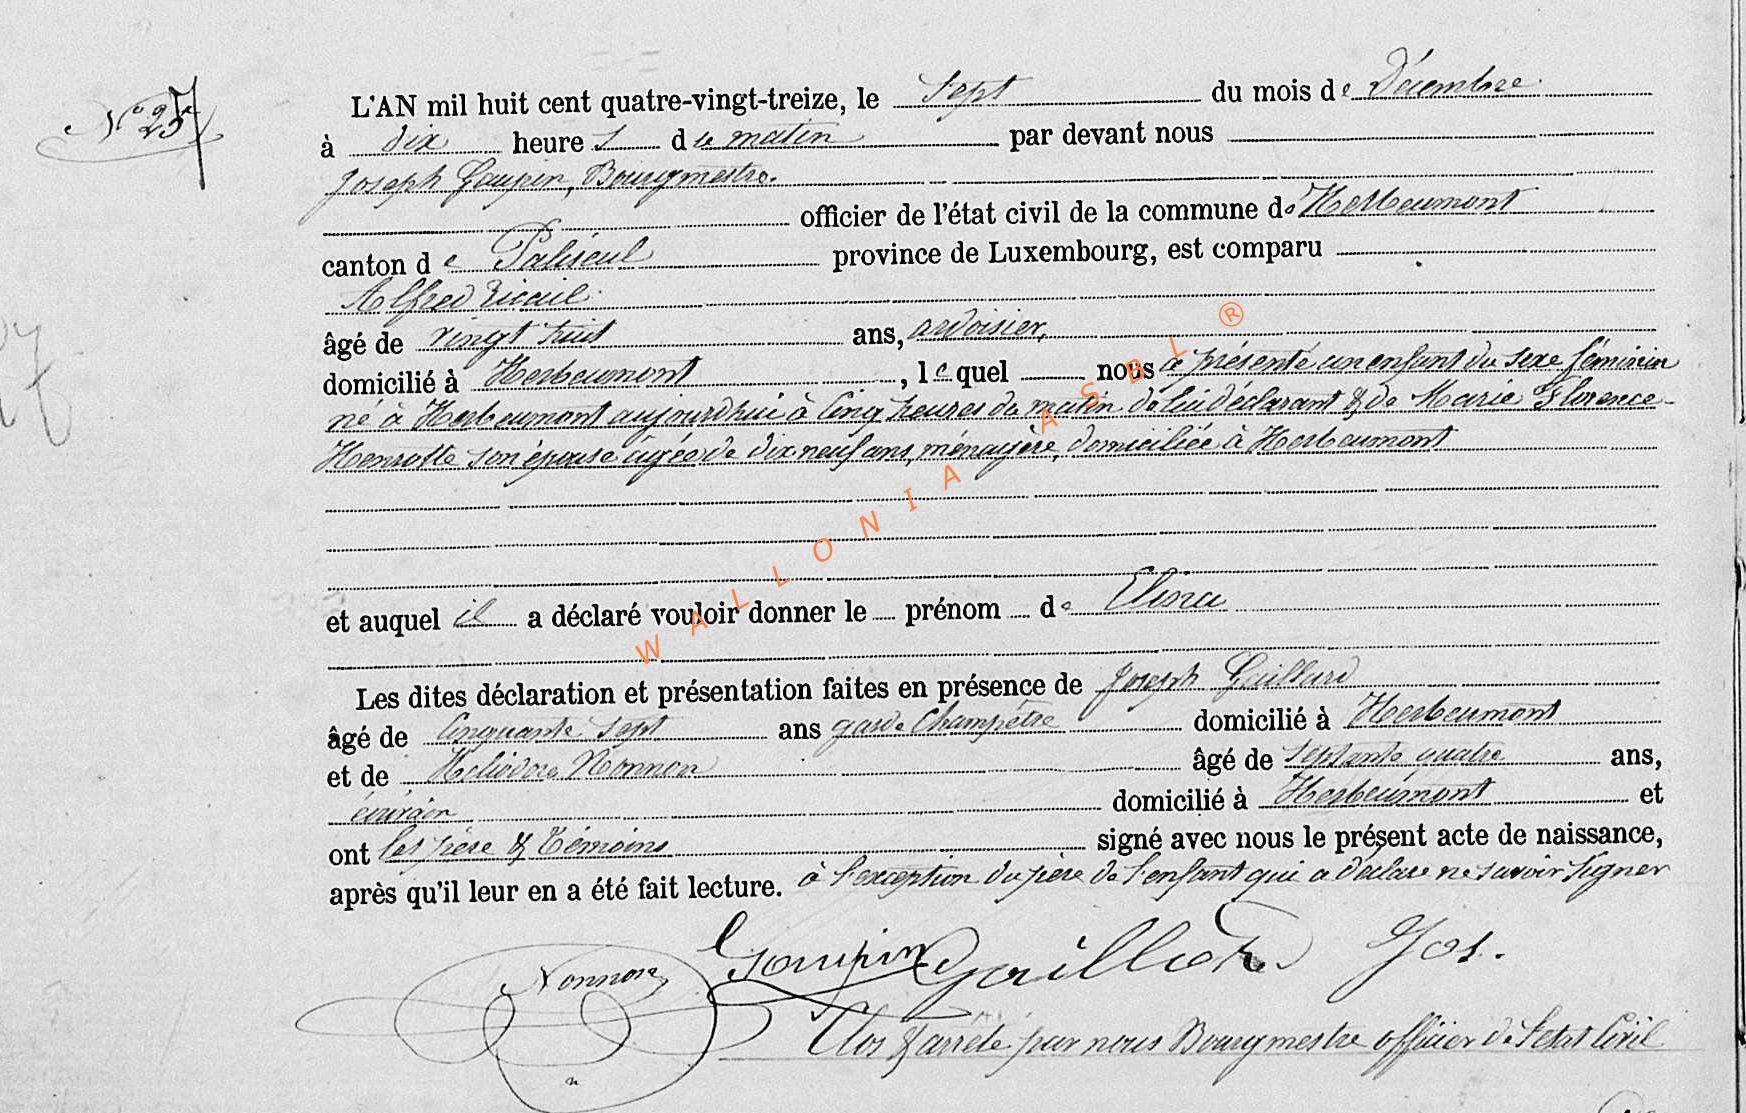 N° 27
L'AN mil huit cent quatre-vingt-treize, le sept du mois de Décembre
à dix heures du matin par devant nous
Joseph Goupin, Bourgmestre.
officier de l'état civil de la commune de Herbeumont
canton de Paliseul province de Luxembourg, est comparu
Alfred
âgé de vingt huit ans, ardoisier,
domicilié à Herbeumont, lequel nous a présenté un enfant du sexe féminin
né à Herbeumont aujourd'hui à cinq heures du matin de lui déclarant & de Marie Florence
Henrotte son épouse âgée de dix neuf ans, ménagère, domiciliée à Herbeumont
et auquel il a déclaré vouloir donner le prénom de Elina
Les dites déclaration et présentation faites en présence de Joseph Gaillard
âgé de cinquante sept ans garde Champêtre domicilié à Herbeumont
et de Héliodore Nonnon âgé de septante quatre ans,
domicilié à Herbeumont et
ont les père & témoins signé avec nous le présent acte de naissance,
après qu'il leur en a été fait lecture. à l'exception du père de l'enfant qui a déclaré ne savoir signer
Nonnon Goupin Gaillard Jos.
Clos & arrêté par nous Bourgmestre officier de l'Etat Civil
WALLONIA ASBL ®